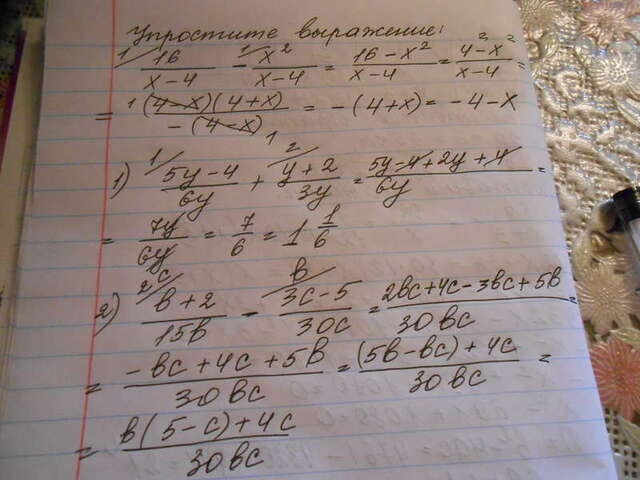 Упростите выражение:
1/ 16/(x-4) - 1/ x²/(x-4) = (16-x²)/(x-4) = (4²-x²)/(x-4) =
= 1 (4-x)(4+x)/(-(4-x) 1) = -(4+x) = -4-x
1) 1/ (5y-4)/(6y) + 2/ (y+2)/(3y) = (5y-4+2y+4)/(6y) =
= 7y/(6y) = 7/6 = 1 1/6
2) 2c/ (в+2)/(15в) - в/ (3c-5)/(30c) = (2вc+4c-3вc+5в)/(30вc) =
= (-вc+4c+5в)/(30вc) = ((5в-вc)+4c)/(30вc) =
= (в(5-c)+4c)/(30вc)